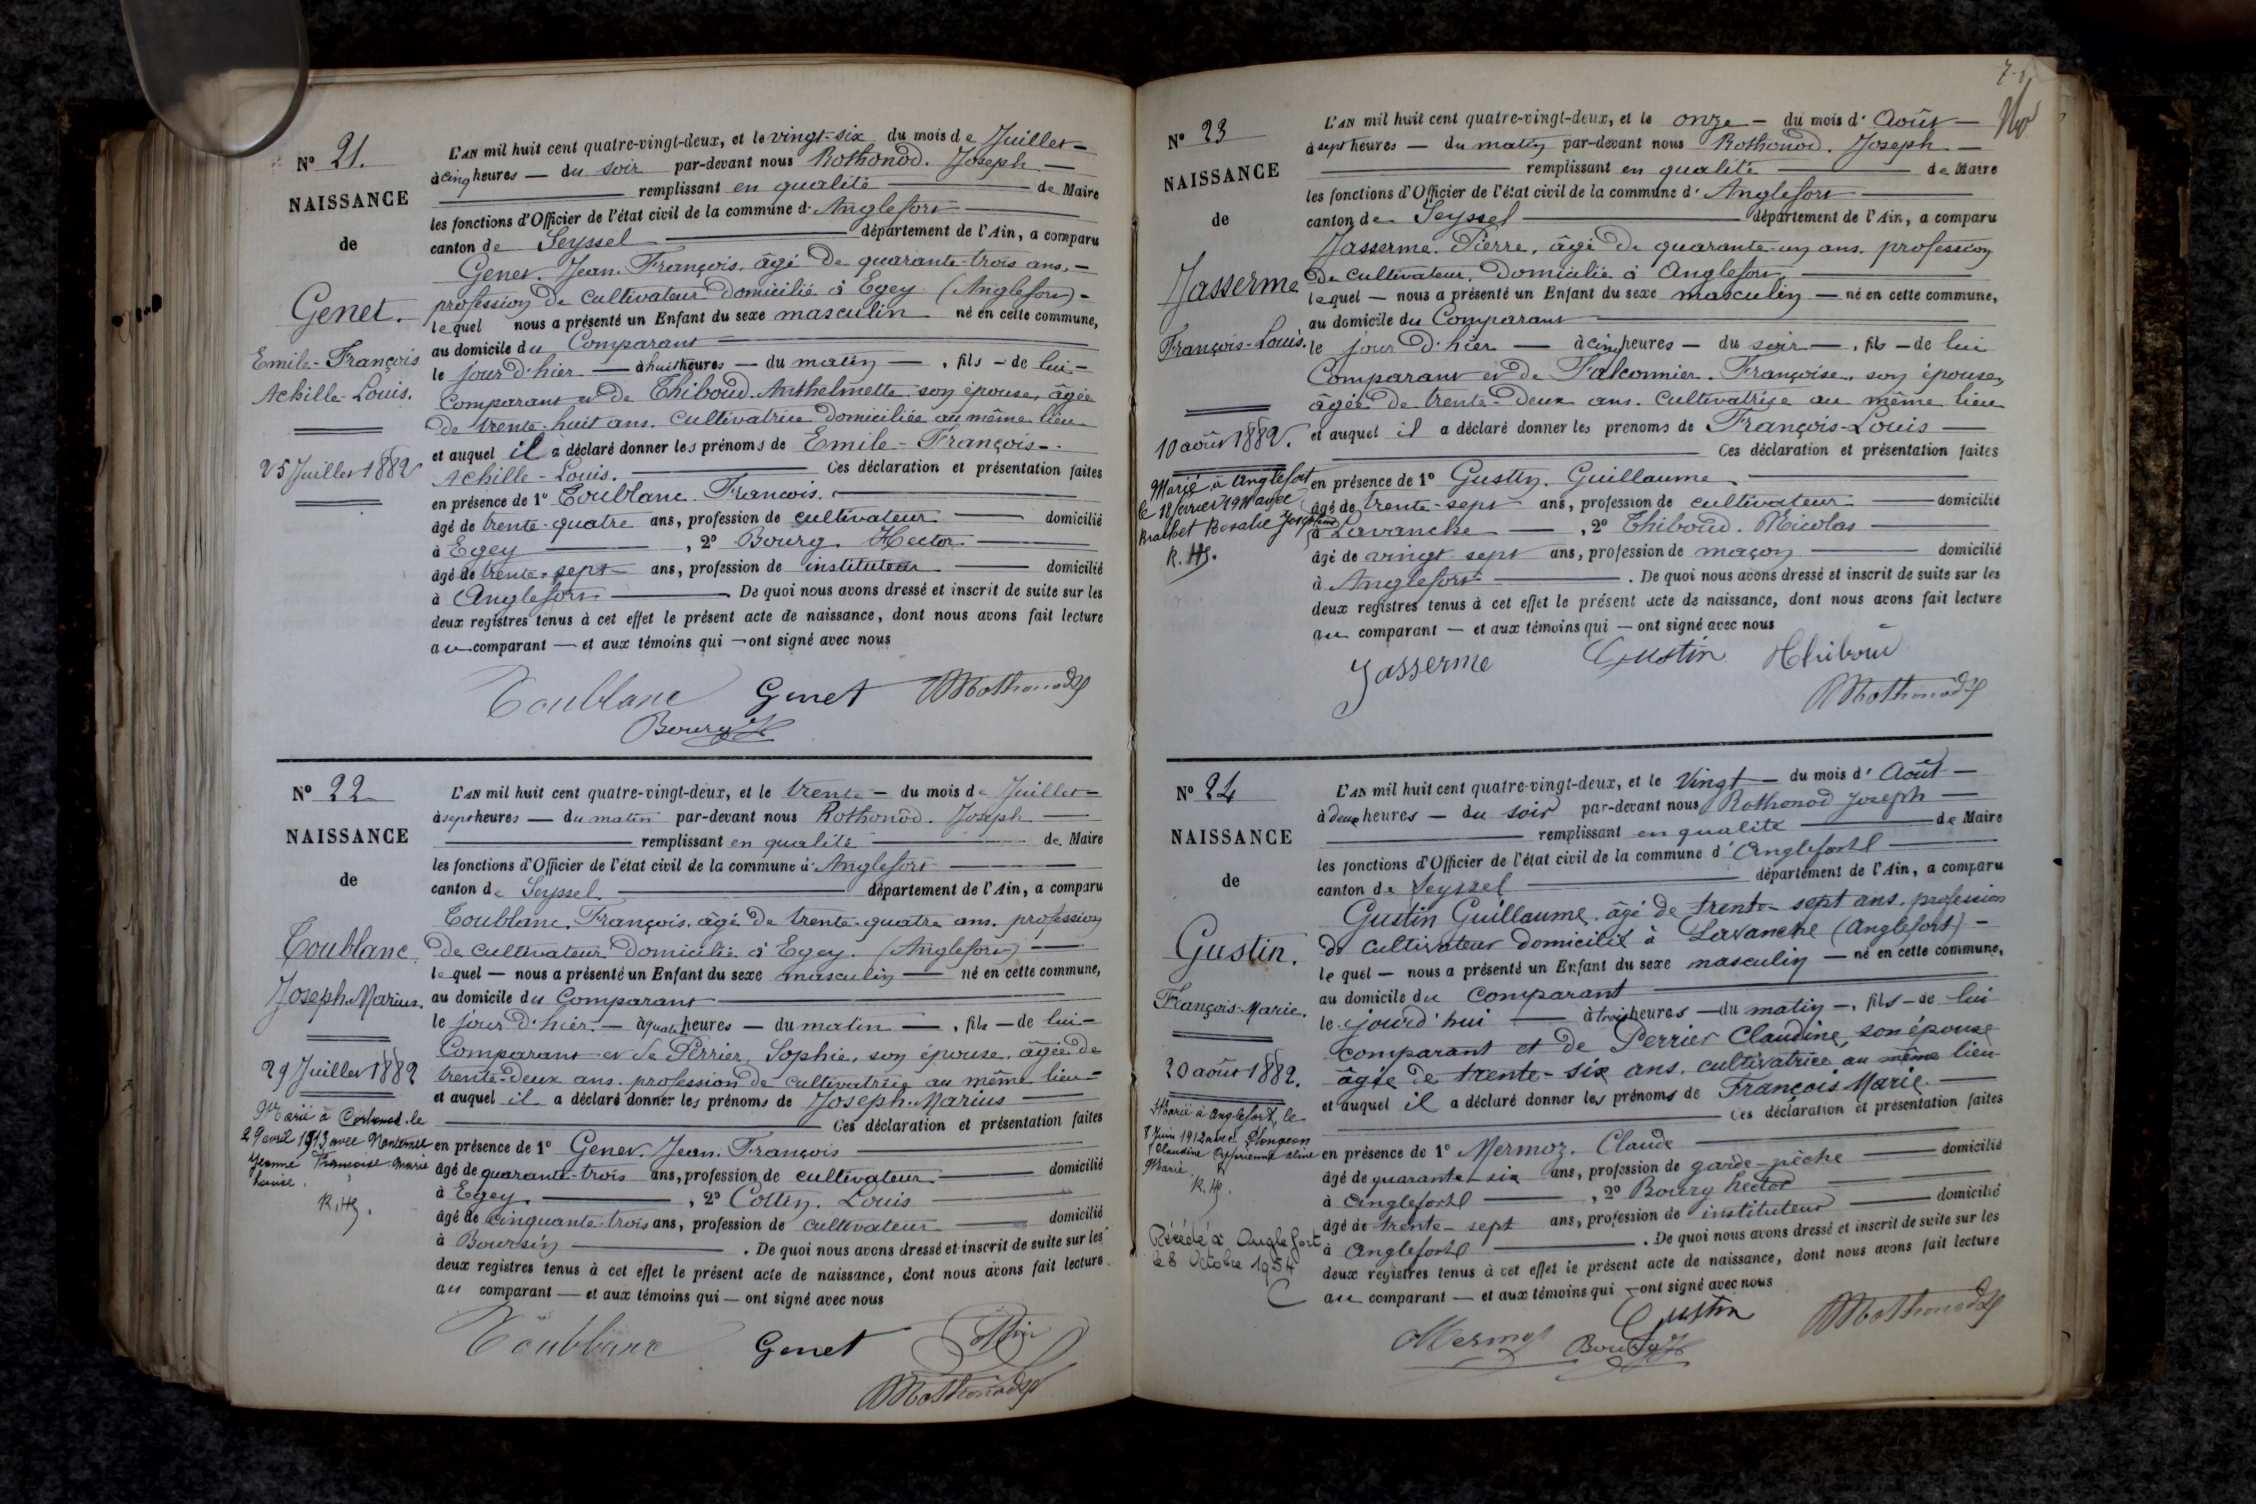 N° 21.
NAISSANCE
de
Genet.
Emile-François
Achille-Louis.
25 Juillet 1882
L'AN mil huit cent quatre-vingt-deux, et le vingt-six du mois de Juillet
à cinq heures du soir par-devant nous Rothonod. Joseph
remplissant en qualité de Maire
les fonctions d'Officier de l'état civil de la commune d' Anglefort
canton de Seyssel département de l'Ain, a comparu
Genet. Jean. François. âgé de quarante-trois ans,
profession de cultivateur domicilié à Egey (Anglefort)
lequel nous a présenté un Enfant du sexe masculin né en cette commune,
au domicile du Comparant
le jour d'hier à huit heures du matin, fils de lui
Comparant et de Thiboud. Anthelmette son épouse, âgée
de trente-huit ans. cultivatrice domiciliée au même lieu
et auquel il a déclaré donner les prénoms de Emile-François-
Achille-Louis. Ces déclaration et présentation faites
en présence de 1° Toublanc. François.
âgé de trente-quatre ans, profession de cultivateur domicilié
à Egey, 2° Bourg. Hector
âgé de trente-sept ans, profession de instituteur domicilié
à Anglefort De quoi nous avons dressé et inscrit de suite sur les
deux registres tenus à cet effet le présent acte de naissance, dont nous avons fait lecture
au comparant et aux témoins qui ont signé avec nous
Toublanc Genet Rothonod J
Bourg H
N° 22
NAISSANCE
de
Toublanc.
Joseph-Marius.
29 Juillet 1882
Marié à Corbonod le
29 avril 1913 avec
Jeanne Françoise Marie
Louise.
L'AN mil huit cent quatre-vingt-deux, et le trente du mois de Juillet
à sept heures du matin par-devant nous Rothonod. Joseph
remplissant en qualité de Maire
les fonctions d'Officier de l'état civil de la commune d' Anglefort
canton de Seyssel département de l'Ain, a comparu
Toublanc. François. âgé de trente-quatre ans. profession
de cultivateur domicilié à Egey. (Anglefort)
lequel nous a présenté un Enfant du sexe masculin né en cette commune,
au domicile du Comparant
le jour d'hier. à quatre heures du matin, fils de lui
Comparant et de Perrier. Sophie, son épouse. âgée de
trente-deux ans. profession de cultivatrice au même lieu
et auquel il a déclaré donner les prénoms de Joseph-Marius
Ces déclaration et présentation faites
en présence de 1° Genet. Jean. François
âgé de quarante-trois ans, profession de cultivateur domicilié
à Egey, 2° Collin. Louis
âgé de cinquante-trois ans, profession de cultivateur domicilié
à Boursin. De quoi nous avons dressé et inscrit de suite sur les
deux registres tenus à cet effet le présent acte de naissance, dont nous avons fait lecture
au comparant et aux témoins qui ont signé avec nous
Toublanc Genet Collin
Rothonod J
N° 23
NAISSANCE
de
Jasserme
François-Louis.
10 août 1882.
Marié à Anglefort
Brachet Rosalie Joséphine
L'AN mil huit cent quatre-vingt-deux, et le onze du mois d' Août
à sept heures du matin par-devant nous Rothonod. Joseph
remplissant en qualité de Maire
les fonctions d'Officier de l'état civil de la commune d' Anglefort
canton de Seyssel département de l'Ain, a comparu
Jasserme. Pierre, âgé de quarante-un ans. profession
de cultivateur, domicilié à Anglefort,
lequel nous a présenté un Enfant du sexe masculin né en cette commune,
au domicile du Comparant
le jour d'hier à cinq heures du soir, fils de lui
Comparant et de Falconnier. Françoise. son épouse,
âgée de trente-deux ans. cultivatrice au même lieu
et auquel il a déclaré donner les prénoms de François-Louis
Ces déclaration et présentation faites
en présence de 1° Gustin. Guillaume
âgé de trente-sept ans, profession de cultivateur domicilié
à Lavanche, 2° Thiboud. Nicolas
âgé de vingt-sept ans, profession de maçon domicilié
à Anglefort. De quoi nous avons dressé et inscrit de suite sur les
deux registres tenus à cet effet le présent acte de naissance, dont nous avons fait lecture
au comparant et aux témoins qui ont signé avec nous
Jasserme Gustin Thiboud
Rothonod J
N° 24
NAISSANCE
de
Gustin.
François-Marie.
20 août 1882.
Marié à Anglefort, le
8 Juin 1912 avec
Claudine Cyprienne Aline
Marie.
Décédé à Anglefort
le 8 Octobre 1954
L'AN mil huit cent quatre-vingt-deux, et le Vingt du mois d' Août
à deux heures du soir par-devant nous Rothonod Joseph
remplissant en qualité de Maire
les fonctions d'Officier de l'état civil de la commune d' Anglefort
canton de Seyssel département de l'Ain, a comparu
Gustin Guillaume. âgé de trente-sept ans. profession
de cultivateur domicilié à Lavanche (Anglefort)
lequel nous a présenté un Enfant du sexe masculin né en cette commune,
au domicile du comparant
le jourd'hui à trois heures du matin, fils de lui
comparant et de Perrier Claudine, son épouse
âgée de trente-six ans. cultivatrice au même lieu
et auquel il a déclaré donner les prénoms de François Marie
Ces déclaration et présentation faites
en présence de 1° Mermoz. Claude
âgé de quarante-six ans, profession de garde-pêche domicilié
à Anglefort, 2° Bourg hector
âgé de trente-sept ans, profession de instituteur domicilié
à Anglefort. De quoi nous avons dressé et inscrit de suite sur les
deux registres tenus à cet effet le présent acte de naissance, dont nous avons fait lecture
au comparant et aux témoins qui ont signé avec nous
Gustin
Mermoz Bourg H Rothonod J